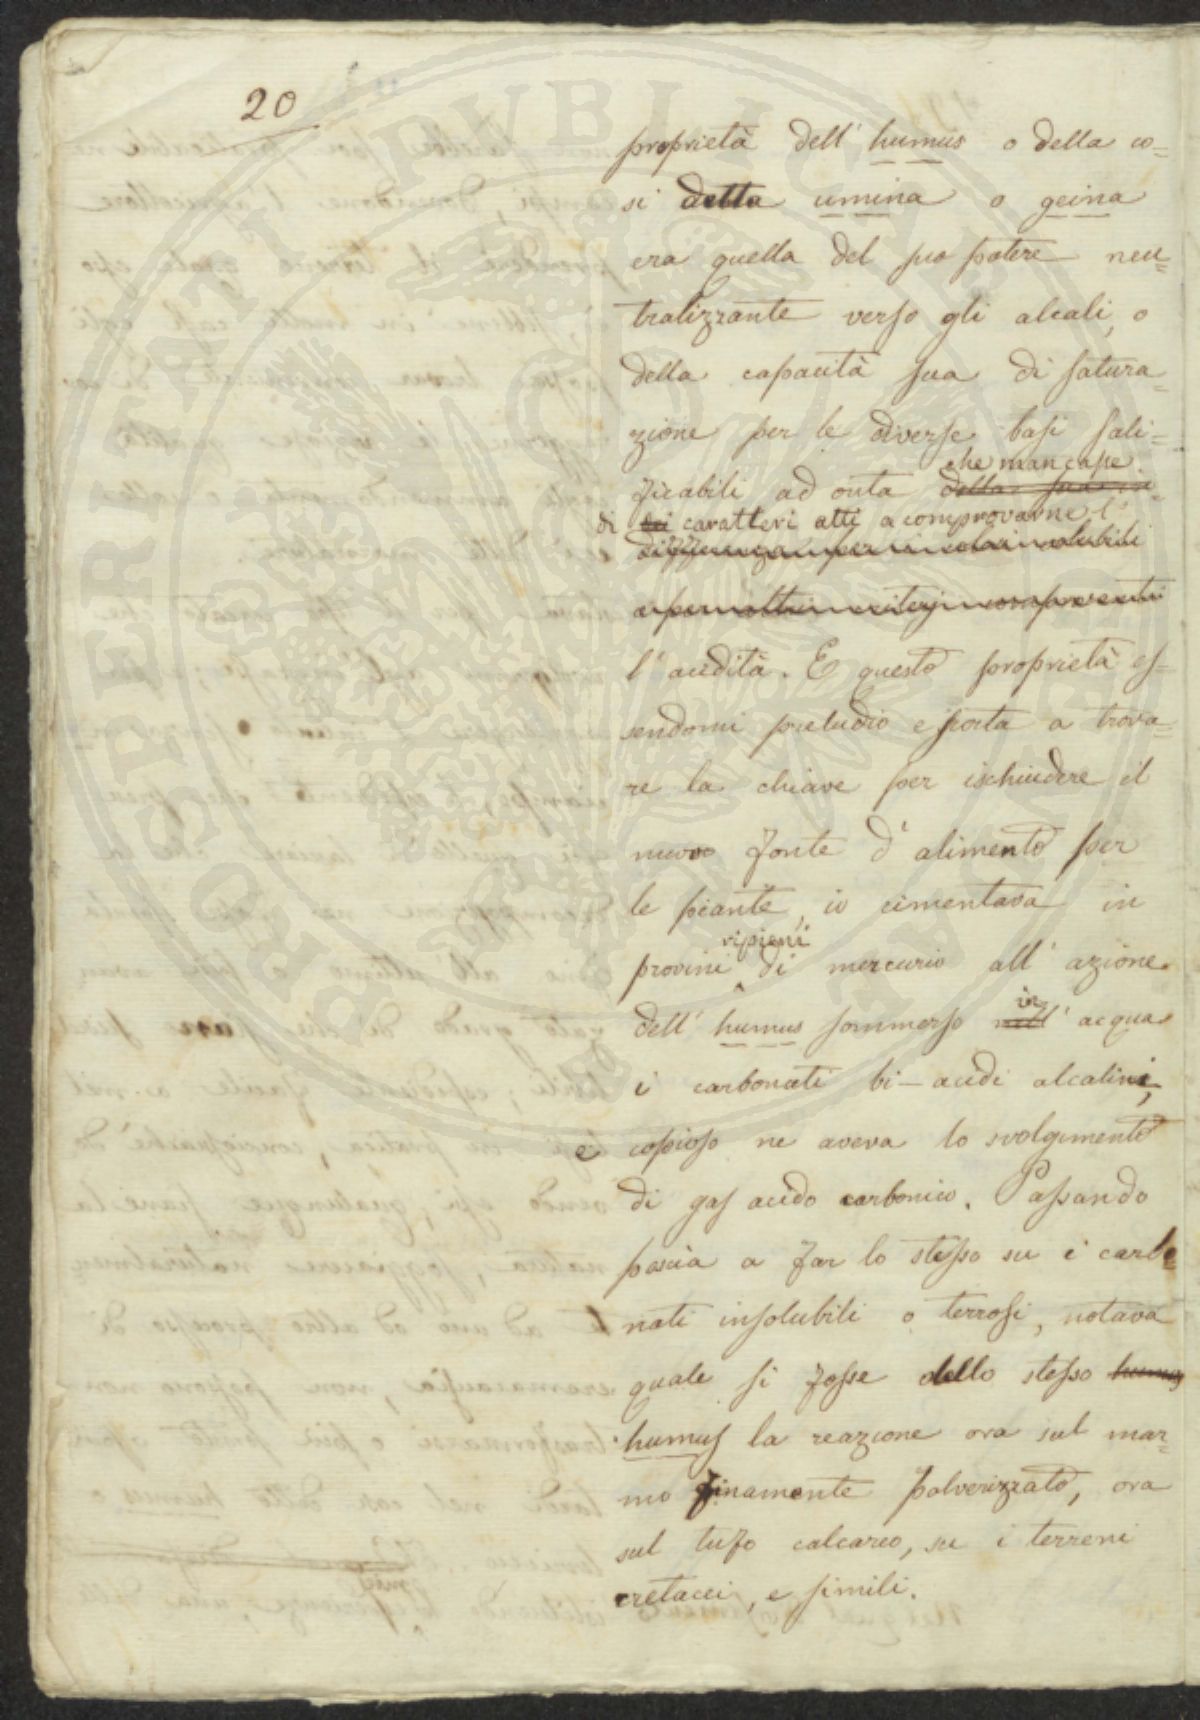 20
proprietà dell' humus o della co=
si detta umina o geina
era quella del suo potere neu=
tralizzante verso gli alcali, o
della capacità sua di satura=
zione per le diverse basi sali=
che mancasse
ficabili ad onta della sua in=
di dei caratteri atti a comprovarne l'
differenza per i colori
l'acidità. E questo proprietà es=
sendomi preludio e porta a trova=
re la chiave per ischiudere il
nuovo fonte d'alimento per
le piante, io cimentava in
ripieni
provini di mercurio all' azione
in
dell' humus sommerso nell' acqua
i carbonati bi-acidi alcalini,
e copioso ne aveva lo svolgimento
di gas acido carbonico. Passando
poscia a far lo stesso su i carbo=
nati insolubili o terrosi, notava
quale si fosse dello stesso humus
humus la reazione ora sul mar=
mo finamente polverizzato, ora
sul tufo calcareo, su i terreni
cretacei, e simili.
PROSPERITATI PVBLICAE